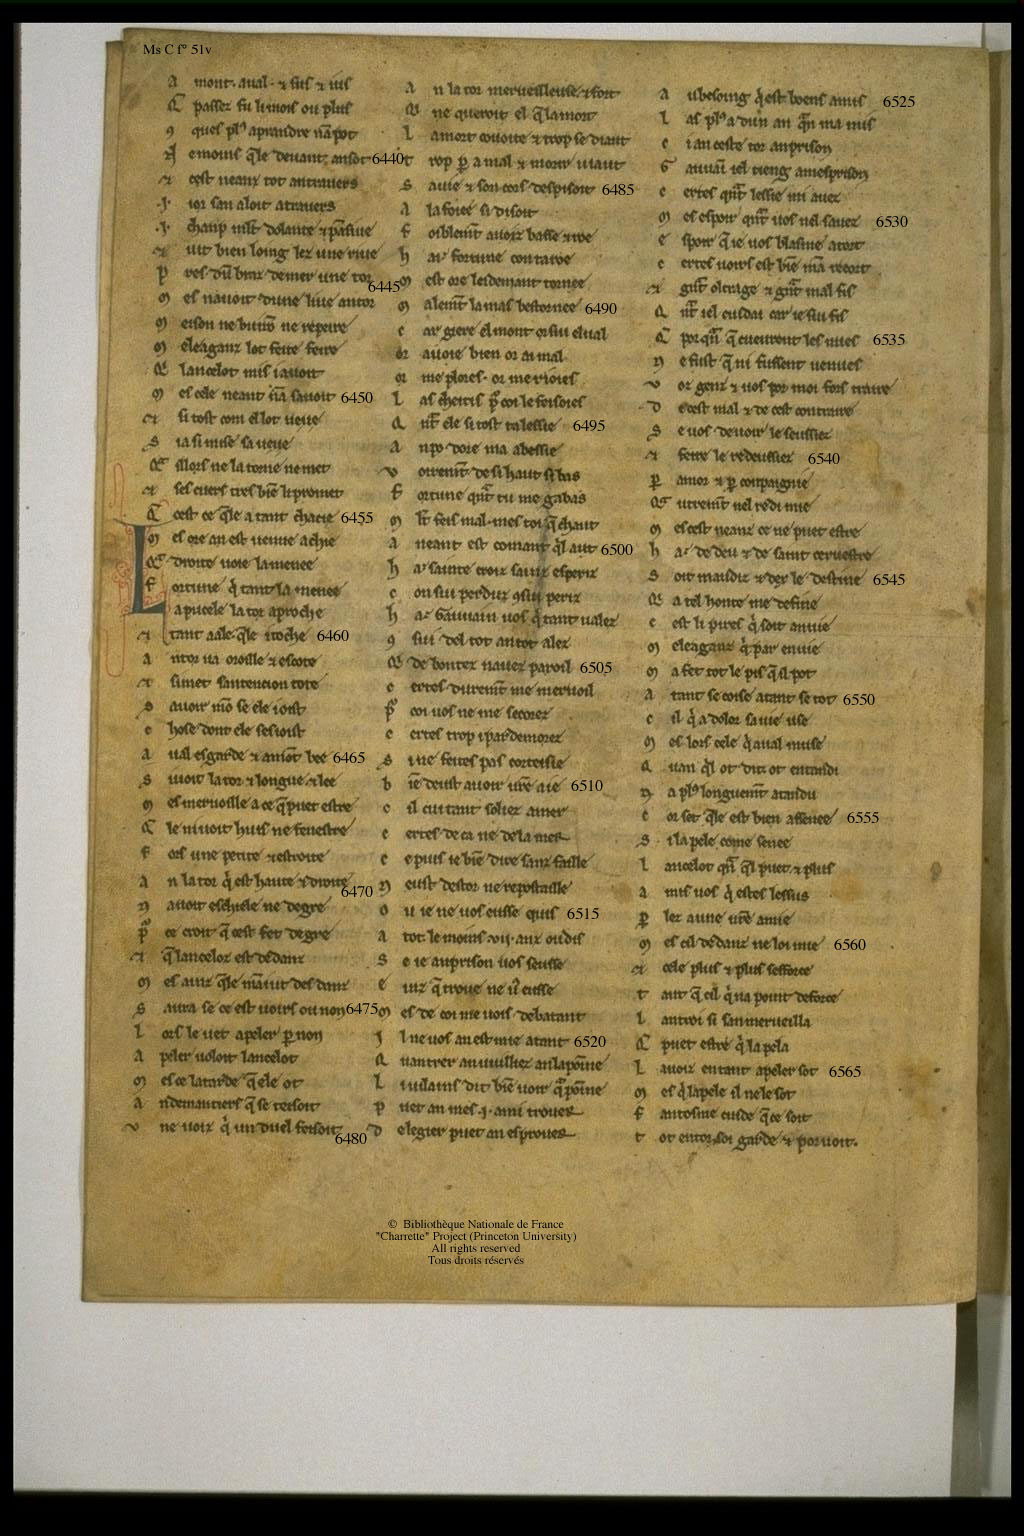 Ms C fº 51v
A mont. aual. ⁊ sus ⁊ ius
Q̃ passez fu li mois ou plus
9 ques pl᾽ aprandre nã pot
N e moins q̃le deuant ansot 6440
⁊ cest neanz tot antrauers
.I. ior san aloit atrauers
.I. chanp mlt dolante ⁊ p̃siue
⁊ uit bien loing lez une riue
P res dũ braz de mer une tor 6445
M es nauoit dune liue antor
M eison ne buirõ ne repeire
M eleaganz lot feite feire
Q̃ lancelot mis i auoit
M es cele neant nã sauoit 6450
⁊ si tost com el lot ueue
S i a si mise sa ueue
Q̃ aillors ne la torne ne met
⁊ ses cuers tres biẽ li promet
Q̃ cest ce q̃le a tant chacie 6455
M es ore an est uenue a chie
Q̃ droite uoie la menee
F ortune q̇ tant la menee
La pucele la tor aproche
⁊ tant aale q̃le i toche 6460
A ntor ua oroille ⁊ escote
⁊ si met santencion tote
S auoir mõ se ele i oist
C hose dont ele sesioist
A ual esgarde ⁊ amõt bee 6465
S i uoit la tor ⁊ longue ⁊ lee
M es meruoille a ce q̃ puet estre
Q̃ le ni uoit huis ne fenestre
F ors une petite ⁊ estroite
A n la tor q̇ est haute ⁊ droite 6470
N auoit eschiele ne degre
P̃ ce croit q̃ cest fet de gre
⁊ q̃ lancelot est dedanz
M es ainz q̃le mãiut des danz
S aura se ce est uoirs ou non 6475
L ors le uet apeler p̱ non
A peler uoloit lancelot
M es ce latarde q̃ ele ot
A ndemantiers q̃ se teisoit
V ne uoiz q̇ un duel feisoit 6480
A n la tor merueilleus ⁊ fort
Q̃ ne queroit el q̃ la mort
L a mort couoite ⁊ trop se diaut
T rop p̱ a mal ⁊ morir uiaut
S a uie ⁊ son cors despisoit 6485
A la foiee si disoit
F oiblemt̃ a uoiz basse ⁊ roe
H aı̃ fortune con ta roe
M est ore leidemant tornee
M alemt̃ la mas bestornee 6490
C ar giere el mont or sui el ual
Or auoie bien or ai mal
Or me plores. or me rioies
L as cheitis p̃ coi le feisoies
Q̃nt ele si tost ta lessie 6495
A n po dore ma abessie
V oiremt̃ de si haut si bas
F ortune qñt tu me gabas
M lt̃ feis mal. mes toi q̃ chaut
A neant est comant q̇l aut 6500
H aı̃ sainte croiz sainz esperiz
C on sui perduz 9 sui periz
H aı̃ Gauuain uos q̇ tant ualez
9 sui del tot an tot alez
Q̃ de bontez nauez paroil 6505
C ertes duremt̃ me meruoil
P̃ coi uos ne me secorez
C ertes trop i par demorez
S i ne feites pas corteisie
B iẽ deust auoir ur̃e aie 6510
C il cui tant soliez amer
C ertes de ca ne de la mer
C e puis ie biẽ dire sanz faille
N eust destor ne repostaille
O u ie ne uos eusse quis 6515
A tot le moins .vij. anz ou dis
S e ie an prison uos seusse
E inz q̃ troue ne u᾽ eusse
M es de coi me uois debatant
I l ne uos an est mie a tant 6520
Q̃ uantrer an uuilliez an la poı̃ne
L i uilains dit biẽ uoir q̃ a poı̃ne
P uet an mes .I. ami trouer
D e legier puet an esprouer
A u besoing q̇ est boens amis 6525
L as pl᾽ a dun an q̃n ma mis
C i an ceste tor an prison
G auuaı̃ iel tieng a mesprison
C ertes qñt lessie mi auez
M es espoir qñt uos nel sauez 6530
E spoir q̃ ie uos blasme a tort
C ertes uoirs est biẽ mã recort
⁊ grñt oltrage ⁊ grñt mal fis
Q̃nt iel cuidai car ie sui fis
Q̃ por qñ q̃ cueurent les nues 6535
N e fust q̃ ni fussent uenues
V oz genz ⁊ uos por moi fors traire
D e cest mal ⁊ de cest contraire
S e uos de uoir le seussiez
⁊ feire le redeussiez 6540
P̱ amor ⁊ p̱ conpaignie
Q̃ autremt̃ nel redi mie
M es cest neanz ce ne puet estre
H aı̃ de deu ⁊ de saint ceruestre
S oit maudiz ⁊ dex le destine 6545
Q̃ a tel honte me define
C est li pires q̇ soit an uie
M eleaganz q̇ par enuie
M a fet tot le pis q̃ il pot
A tant se coise a tant se tot 6550
C il q̇ a dolor sa uie use
M es lors cele q̇ aual muse
Q uan q̇l ot dit ot entandu
N a pl᾽ longuemt̃ atandu
C or set q̃le est bien assenee 6555
S i lapele come senee
L ancelot qñ q̃l puet ⁊ plus
A mis uos q̇ estes lessus
P̱ lez a une ur̃e amie
M es cil dedanz ne loi mie 6560
⁊ cele plus ⁊ plus sefforce
T ant q̃ cil q̇ na point de force
L antroi si san merueilla
Q̃ puet estre q̇ lapela
L a uoiz entant apeler sot 6565
M es q̇ lapele il ne le sot
F antosme cuide q̃ ce soit
T ot entor soi garde ⁊ poruoit.
© Bibliothèque Nationale de France
"Charrette" Project (Princeton University)
All rights reserved
Tous droits réservés